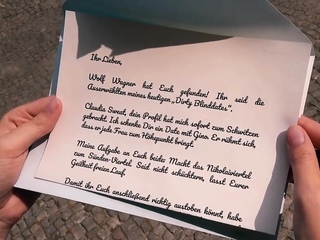 Ihr Lieben,
Wolf Wagner hat Euch gefunden! Ihr seid die
Auserwählten meines heutigen „Dirty Blinddates“.
Claudia Sweat, dein Profil hat mich sofort zum Schwitzen
gebracht. Ich schenke Dir ein Date mit Gino. Er rühmt sich,
dass er jede Frau zum Höhepunkt bringt.
Meine Aufgabe an Euch beide: Macht das Nikolaiviertel
zum Sünden-Viertel. Seid nicht schüchtern, lasst Eurer
Geilheit freien Lauf.
Damit ihr Euch anschließend richtig austoben könnt, habe